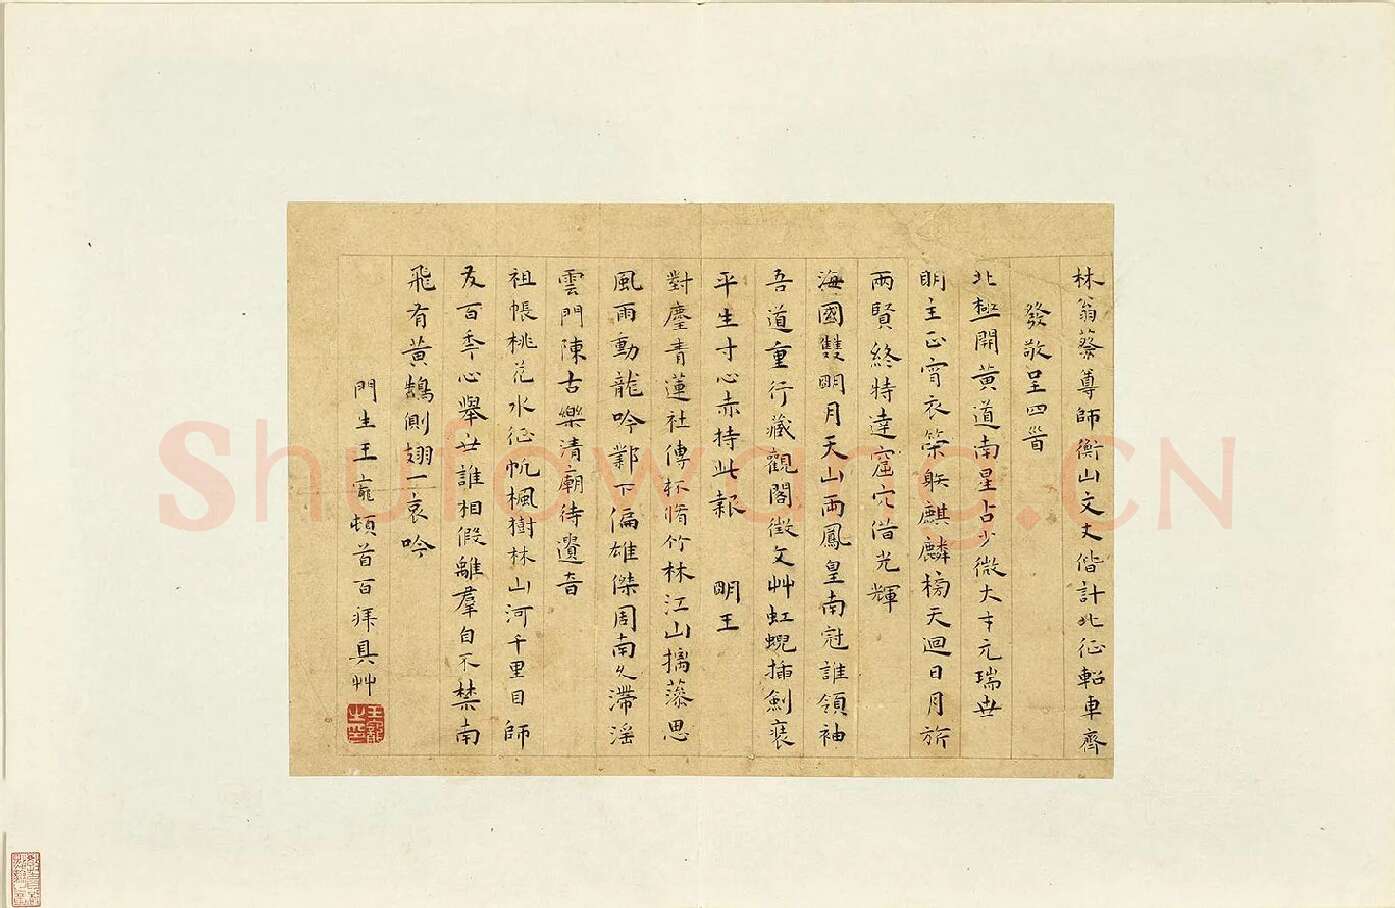 林翁蔡尊師衡山文丈偕計北征軺車齊
發敬呈四首
北極開黃道南星占少微大才元瑞世
明主正宵衣策映麒麟榜天迴日月旂
兩賢終特達窟穴借光輝
海國雙明月天山兩鳳皇南冠誰領袖
吾道重行藏觀閣徵文艸虹蜺插劍裝
平生寸心赤持此報 明王
對塵青蓮社傳杯脩竹林江山摛藻思
風雨動龍吟鄴下偏雄傑周南久滯淫
雲門陳古樂清廟待遺音
祖帳桃花水征帆楓樹林山河千里目師
友百年心舉世誰相假離群自不禁南
飛有黃鵠側翅一哀吟
門生王寵頓首百拜具艸
王寵之印
Shufawang.CN